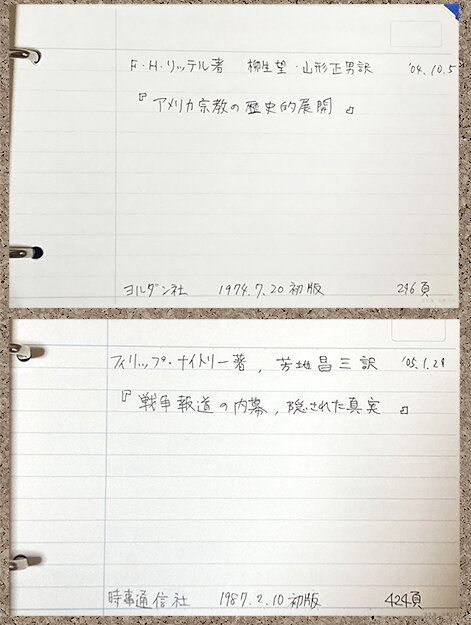 F・H・リッテル著 柳生望・山形正男訳 '04.10.5
『アメリカ宗教の歴史的展開』
ヨルダン社 1974.7.20初版 246頁
フィリップ・ナイトリー著, 芳地昌三訳 '05.1.29
『戦争報道の内幕, 隠された真実』
時事通信社 1987.2.10初版 424頁